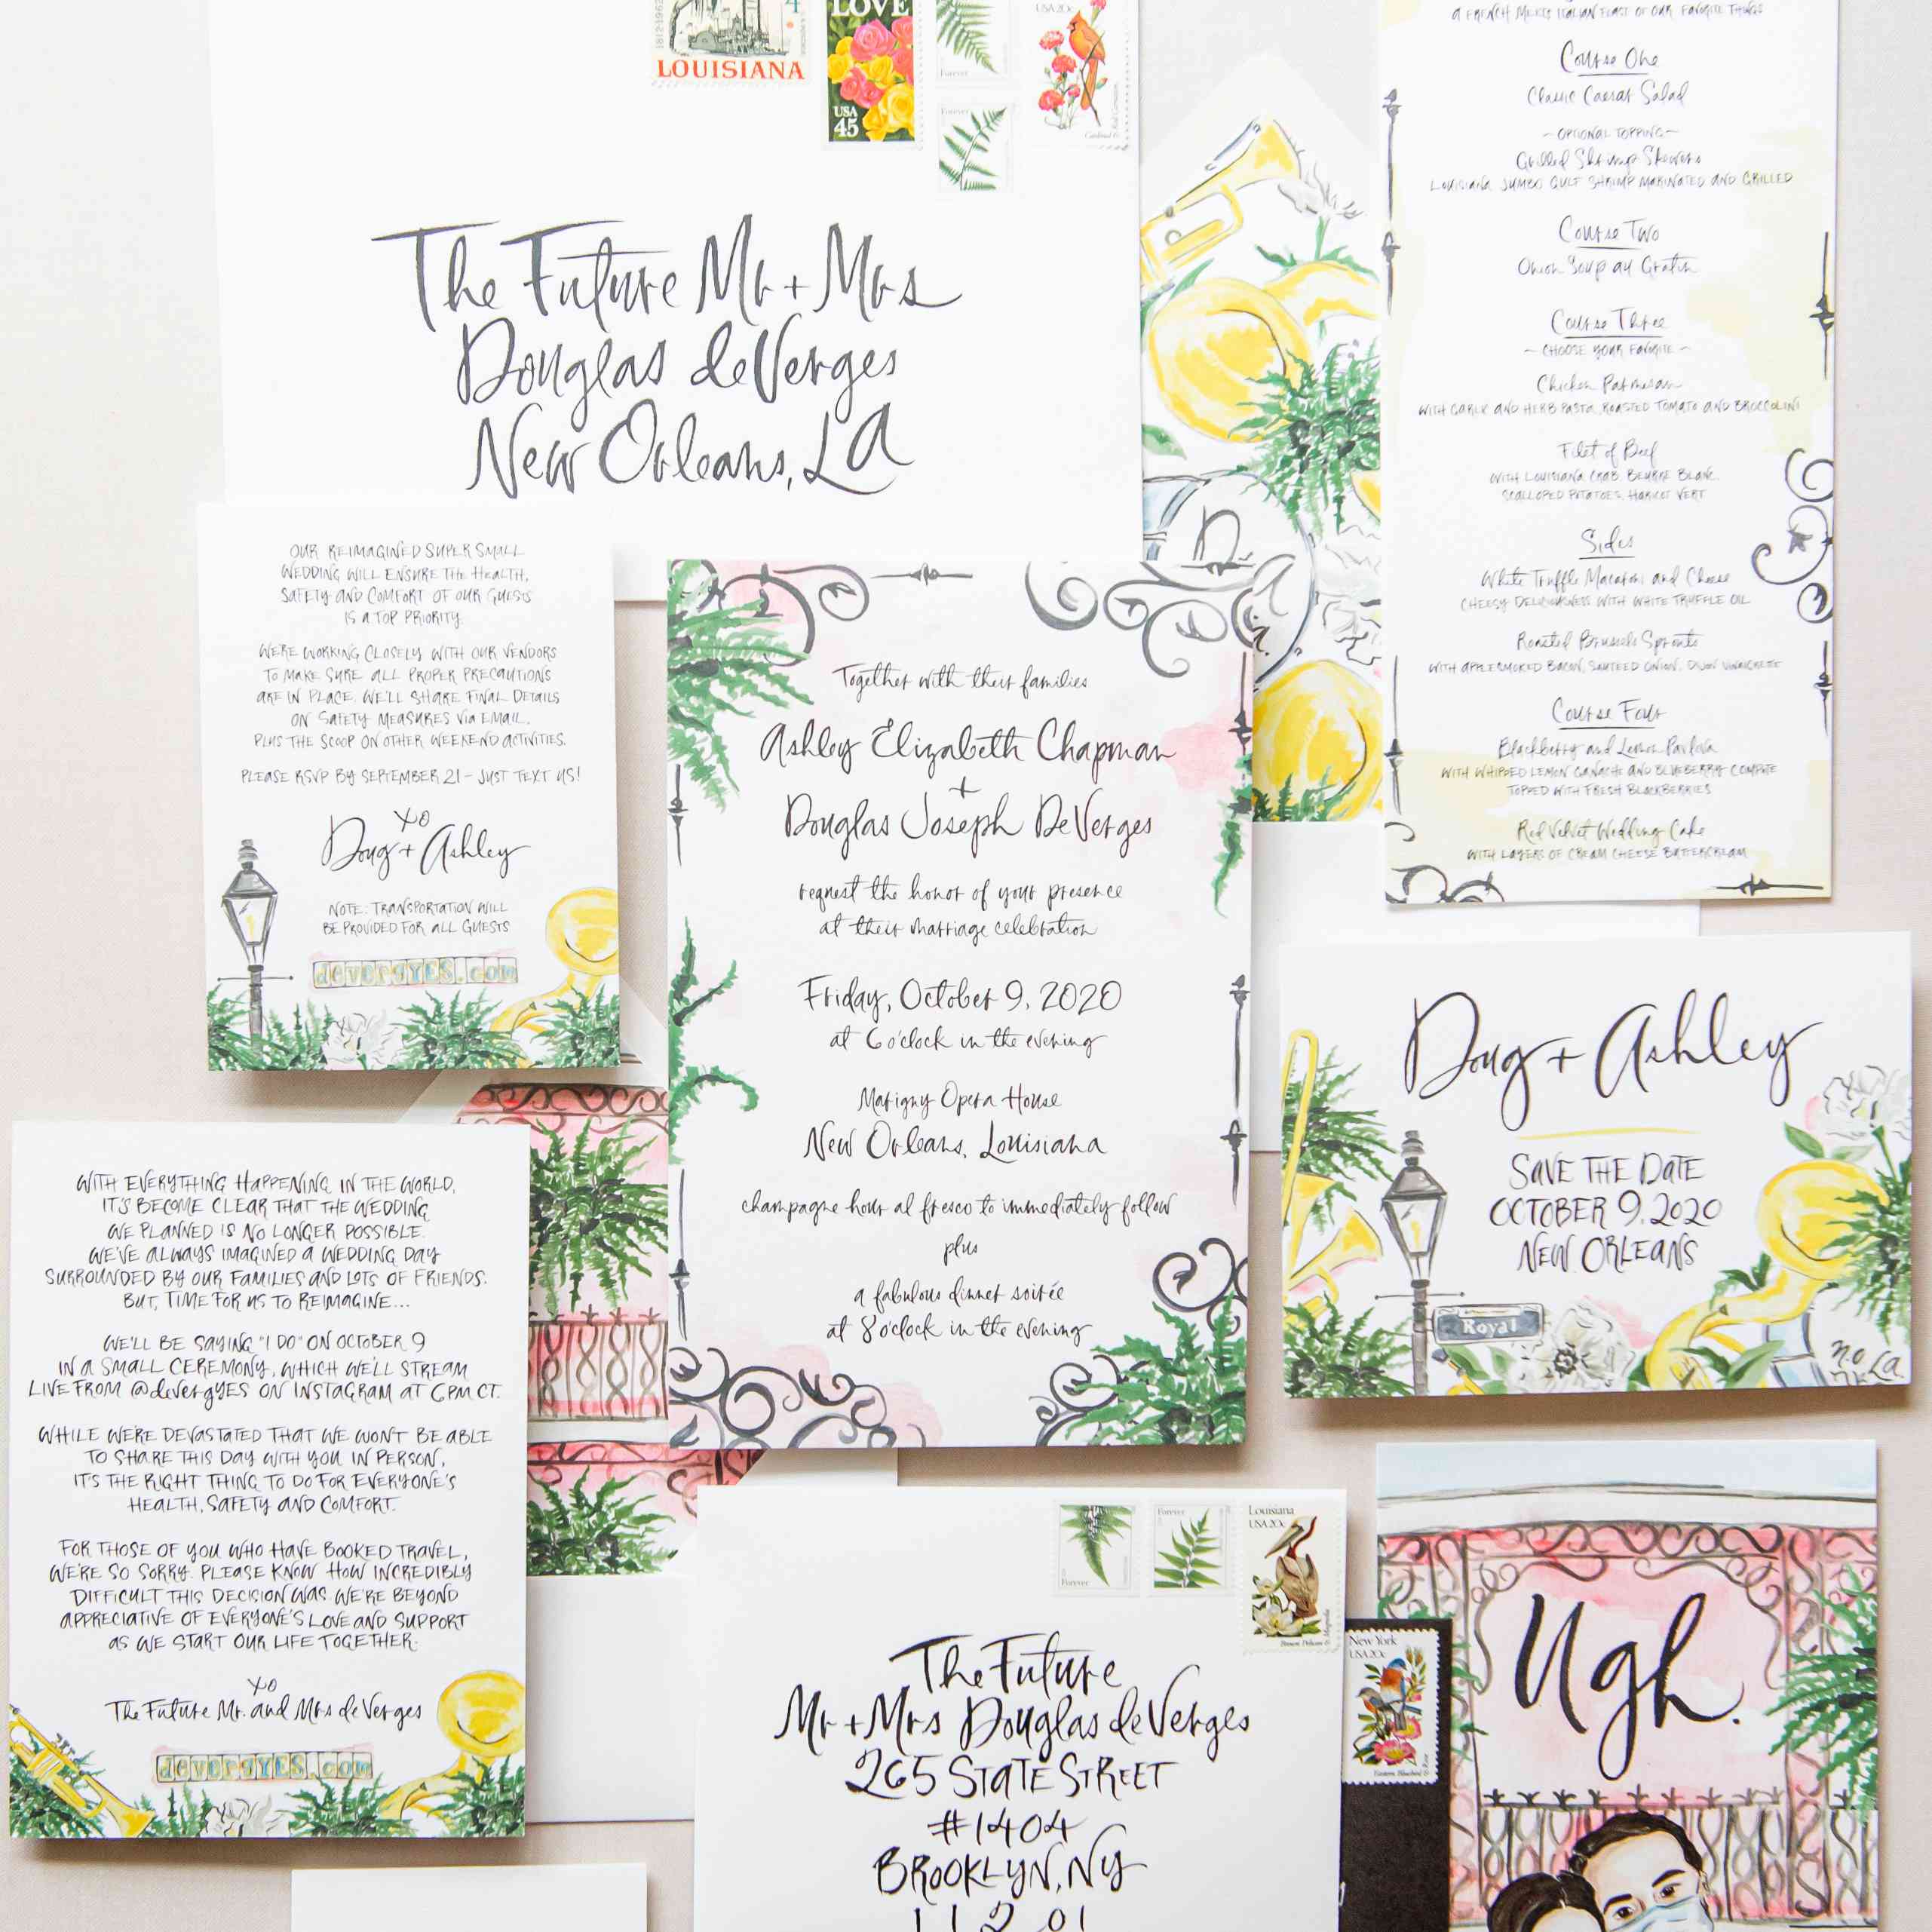 LOUISIANA
1812-1962
4
LOVE
USA
45
Forever
USA 20c
Forever
The Future Mr + Mrs
Douglas deVerges
New Orleans, LA
A FRENCH MEETS ITALIAN FEAST OF OUR FAVORITE THINGS
Course One
Classic Caesar Salad
- OPTIONAL TOPPING -
Grilled Shrimp Skewers
LOUISIANA JUMBO GULF SHRIMP MARINATED AND GRILLED
Course Two
Onion Soup au Gratin
Course Three
- CHOOSE YOUR FAVORITE -
Chicken Parmesan
WITH GARLIC AND HERB PASTA, ROASTED TOMATO AND BROCCOLINI
Filet of Beef
WITH LOUISIANA CRAB, BEURRE BLANC,
SCALLOPED POTATOES, HARICOT VERT
Sides
White Truffle Macaroni and Cheese
CHEESY DELICIOUSNESS WITH WHITE TRUFFLE OIL
Roasted Brussels Sprouts
WITH APPLESMOKED BACON, SAUTEED ONION, DIJON VINAIGRETTE
Course Four
Blackberry and Lemon Pavlova
WITH WHIPPED LEMON GANACHE AND BLUEBERRY COMPOTE
TOPPED WITH FRESH BLACKBERRIES
Red Velvet Wedding Cake
WITH LAYERS OF CREAM CHEESE BUTTERCREAM
OUR REIMAGINED SUPER SMALL
WEDDING WILL ENSURE THE HEALTH,
SAFETY AND COMFORT OF OUR GUESTS
IS A TOP PRIORITY.
WE'RE WORKING CLOSELY WITH OUR VENDORS
TO MAKE SURE ALL PROPER PRECAUTIONS
ARE IN PLACE. WE'LL SHARE FINAL DETAILS
ON SAFETY MEASURES VIA EMAIL,
PLUS THE SCOOP ON OTHER WEEKEND ACTIVITIES.
PLEASE RSVP BY SEPTEMBER 21 - JUST TEXT US!
XO
Doug + Ashley
NOTE: TRANSPORTATION WILL
BE PROVIDED FOR ALL GUESTS
devergYES.com
Together with their families
Ashley Elizabeth Chapman
+
Douglas Joseph DeVerges
request the honor of your presence
at their marriage celebration
Friday, October 9, 2020
at 6 o'clock in the evening
Marigny Opera House
New Orleans, Louisiana
champagne hour al fresco to immediately follow
plus
a fabulous dinner soirée
at 8 o'clock in the evening
D
Doug + Ashley
SAVE THE DATE
OCTOBER 9, 2020
NEW ORLEANS
Royal
NOLA
WITH EVERYTHING HAPPENING IN THE WORLD,
IT'S BECOME CLEAR THAT THE WEDDING
WE PLANNED IS NO LONGER POSSIBLE.
WE'VE ALWAYS IMAGINED A WEDDING DAY
SURROUNDED BY OUR FAMILIES AND LOTS OF FRIENDS.
BUT, TIME FOR US TO REIMAGINE...
WE'LL BE SAYING "I DO" ON OCTOBER 9
IN A SMALL CEREMONY, WHICH WE'LL STREAM
LIVE FROM @devergYES ON INSTAGRAM AT 6PM CT.
WHILE WE'RE DEVASTATED THAT WE WON'T BE ABLE
TO SHARE THIS DAY WITH YOU IN PERSON,
IT'S THE RIGHT THING TO DO FOR EVERYONE'S
HEALTH, SAFETY AND COMFORT.
FOR THOSE OF YOU WHO HAVE BOOKED TRAVEL,
WE'RE SO SORRY. PLEASE KNOW HOW INCREDIBLY
DIFFICULT THIS DECISION WAS. WE'RE BEYOND
APPRECIATIVE OF EVERYONE'S LOVE AND SUPPORT
AS WE START OUR LIFE TOGETHER.
XO
The Future Mr. and Mrs deVerges
devergYES.com
Forever
Forever
Louisiana
USA 20c
The Future
Mr + Mrs Douglas deVerges
265 STATE STREET
#1404
BROOKLYN, NY
11201
New York
USA 20c
Ugh.